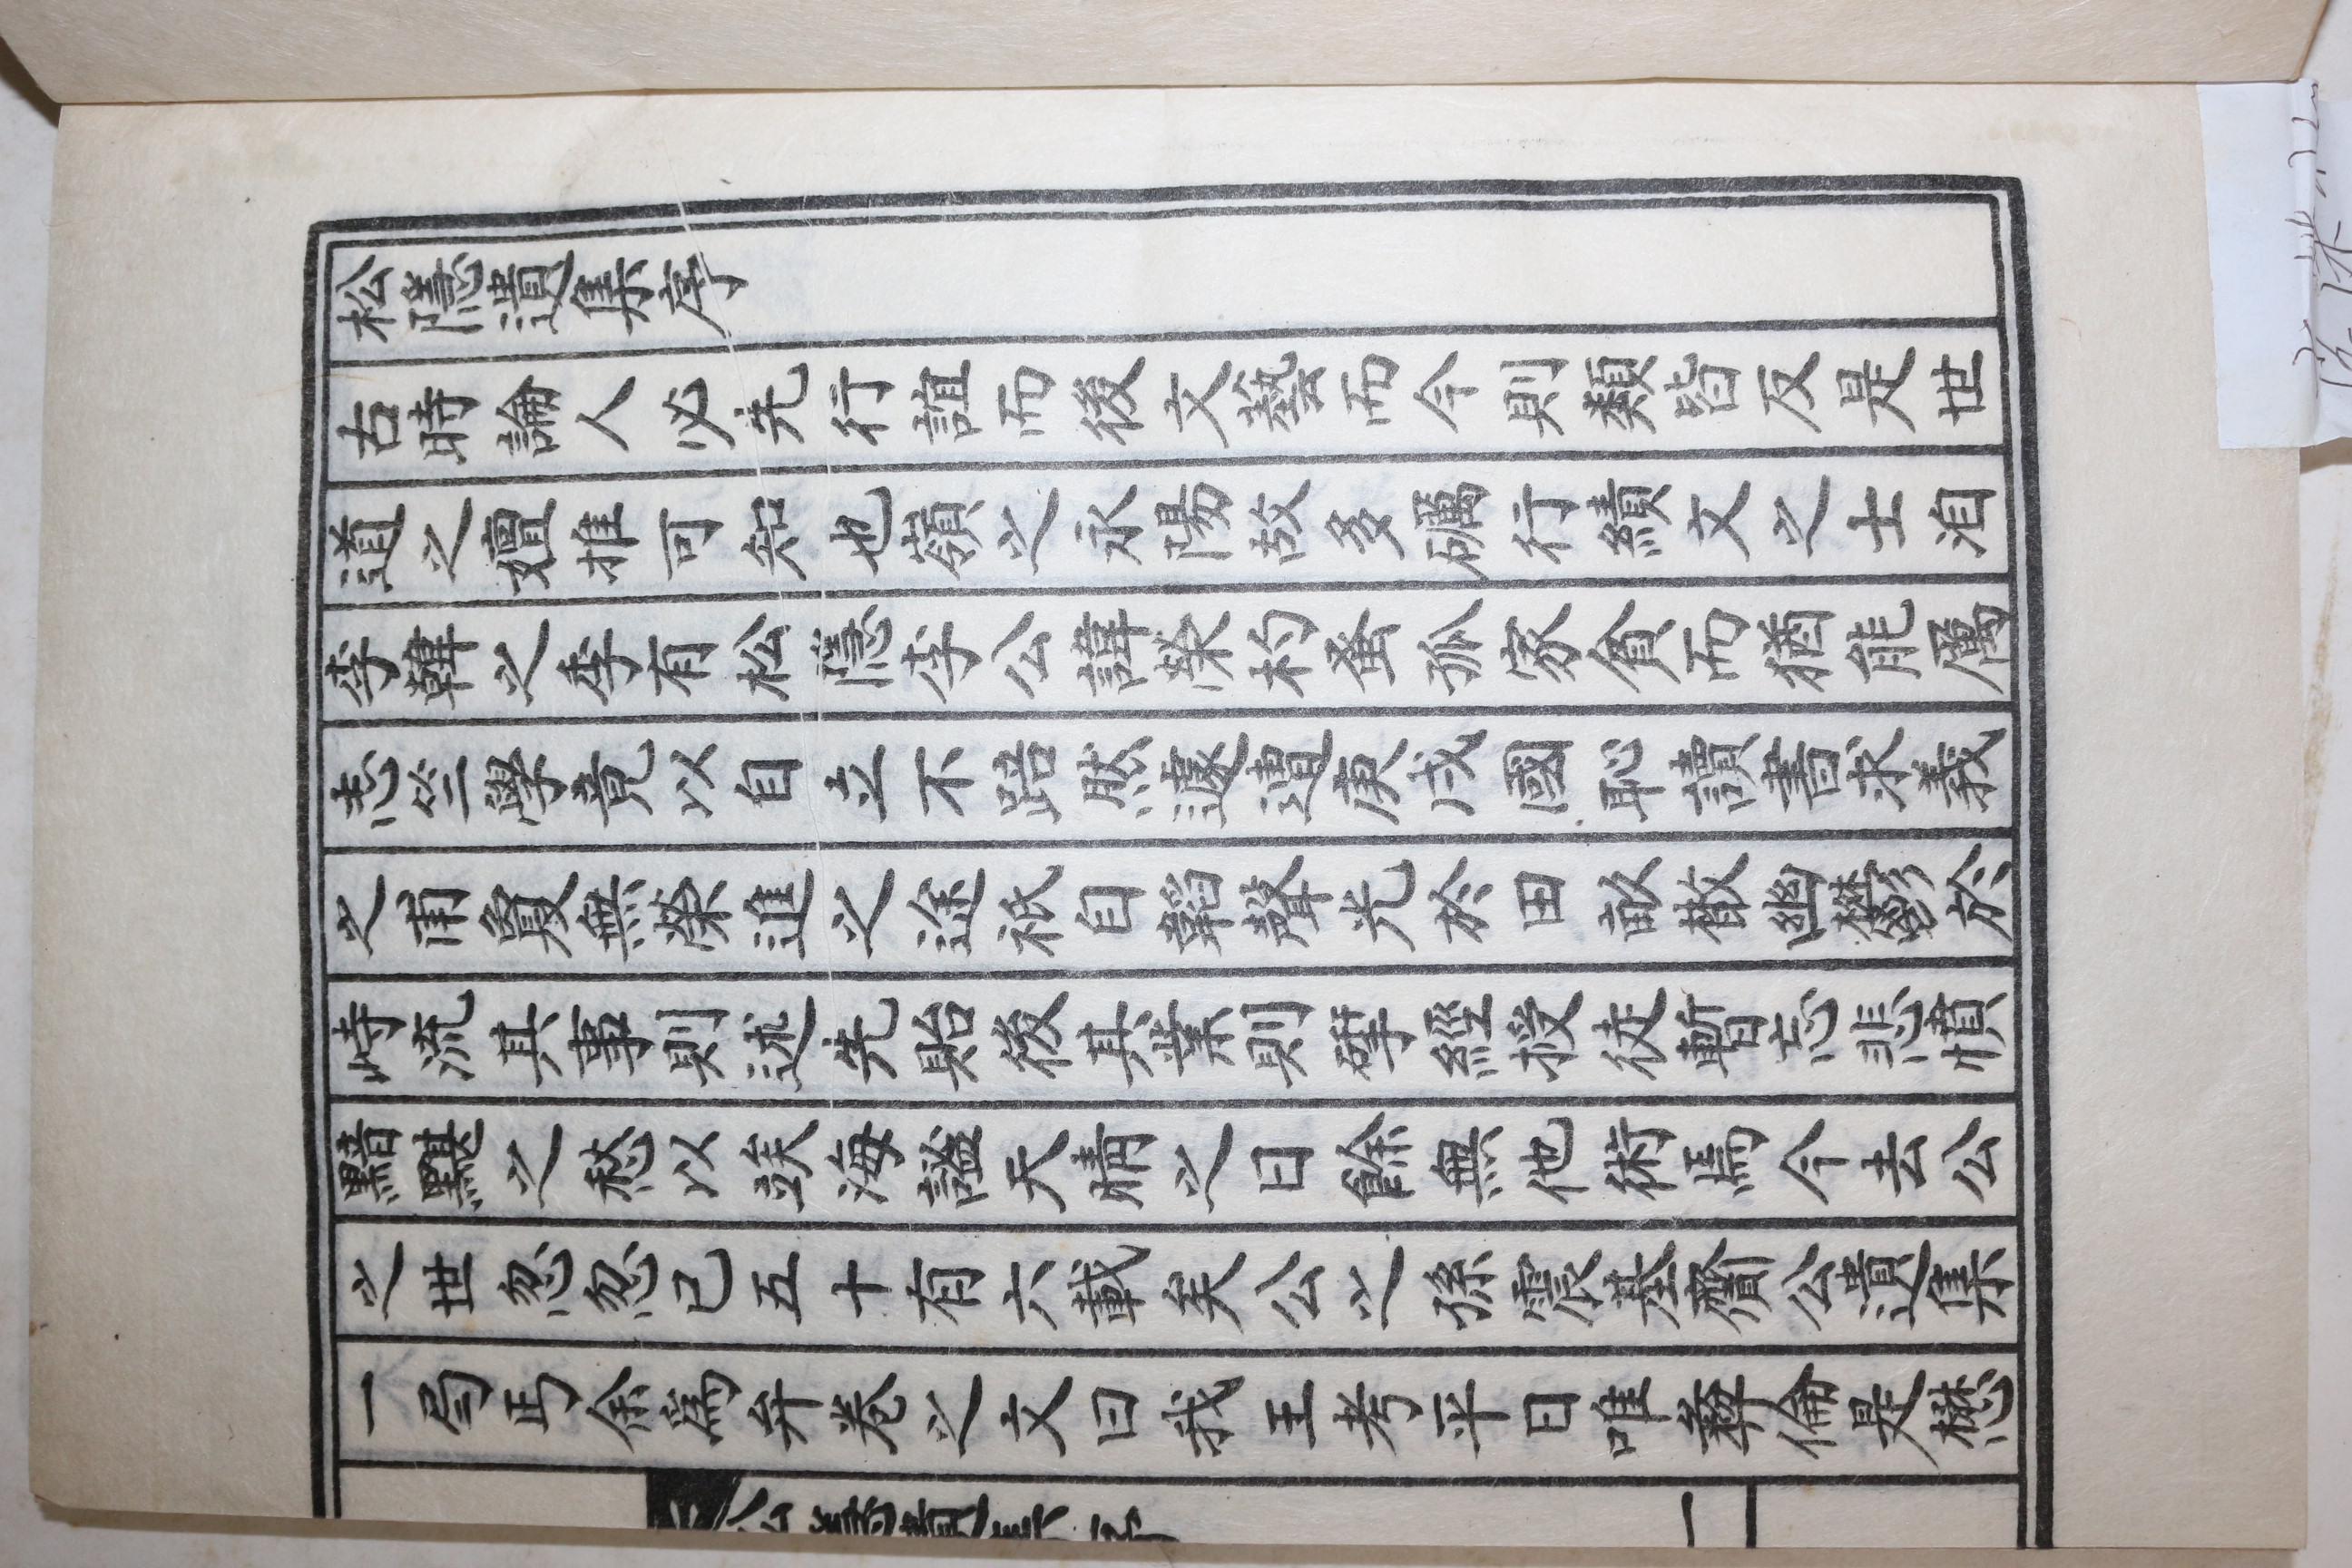 松隱遺集序
古時論人必先行誼而後文藝而今則類皆反是世
道之嬗推可知也嶺之永陽故多礪行績文之士洎
李韓之季有松隱李公諱榮杓蚤孤家貧而猶能厲
志學竟以自立不踣然遽遭庚戌國恥讀書求義
之甫夐無榮進之塗祗自韜聲光於田畝散幽鬱於
峙流其事則述先貽後其業則硏經授徒暫忘悲憤
黯黮之愁以竢海謐天晴之日餘無他術焉今去公
之世忽忽已五十有六載矣公之孫震基齎公遺集
一弓丐余爲弁卷之文曰我王考平日唯彝倫是懋
松隱遺集序 一